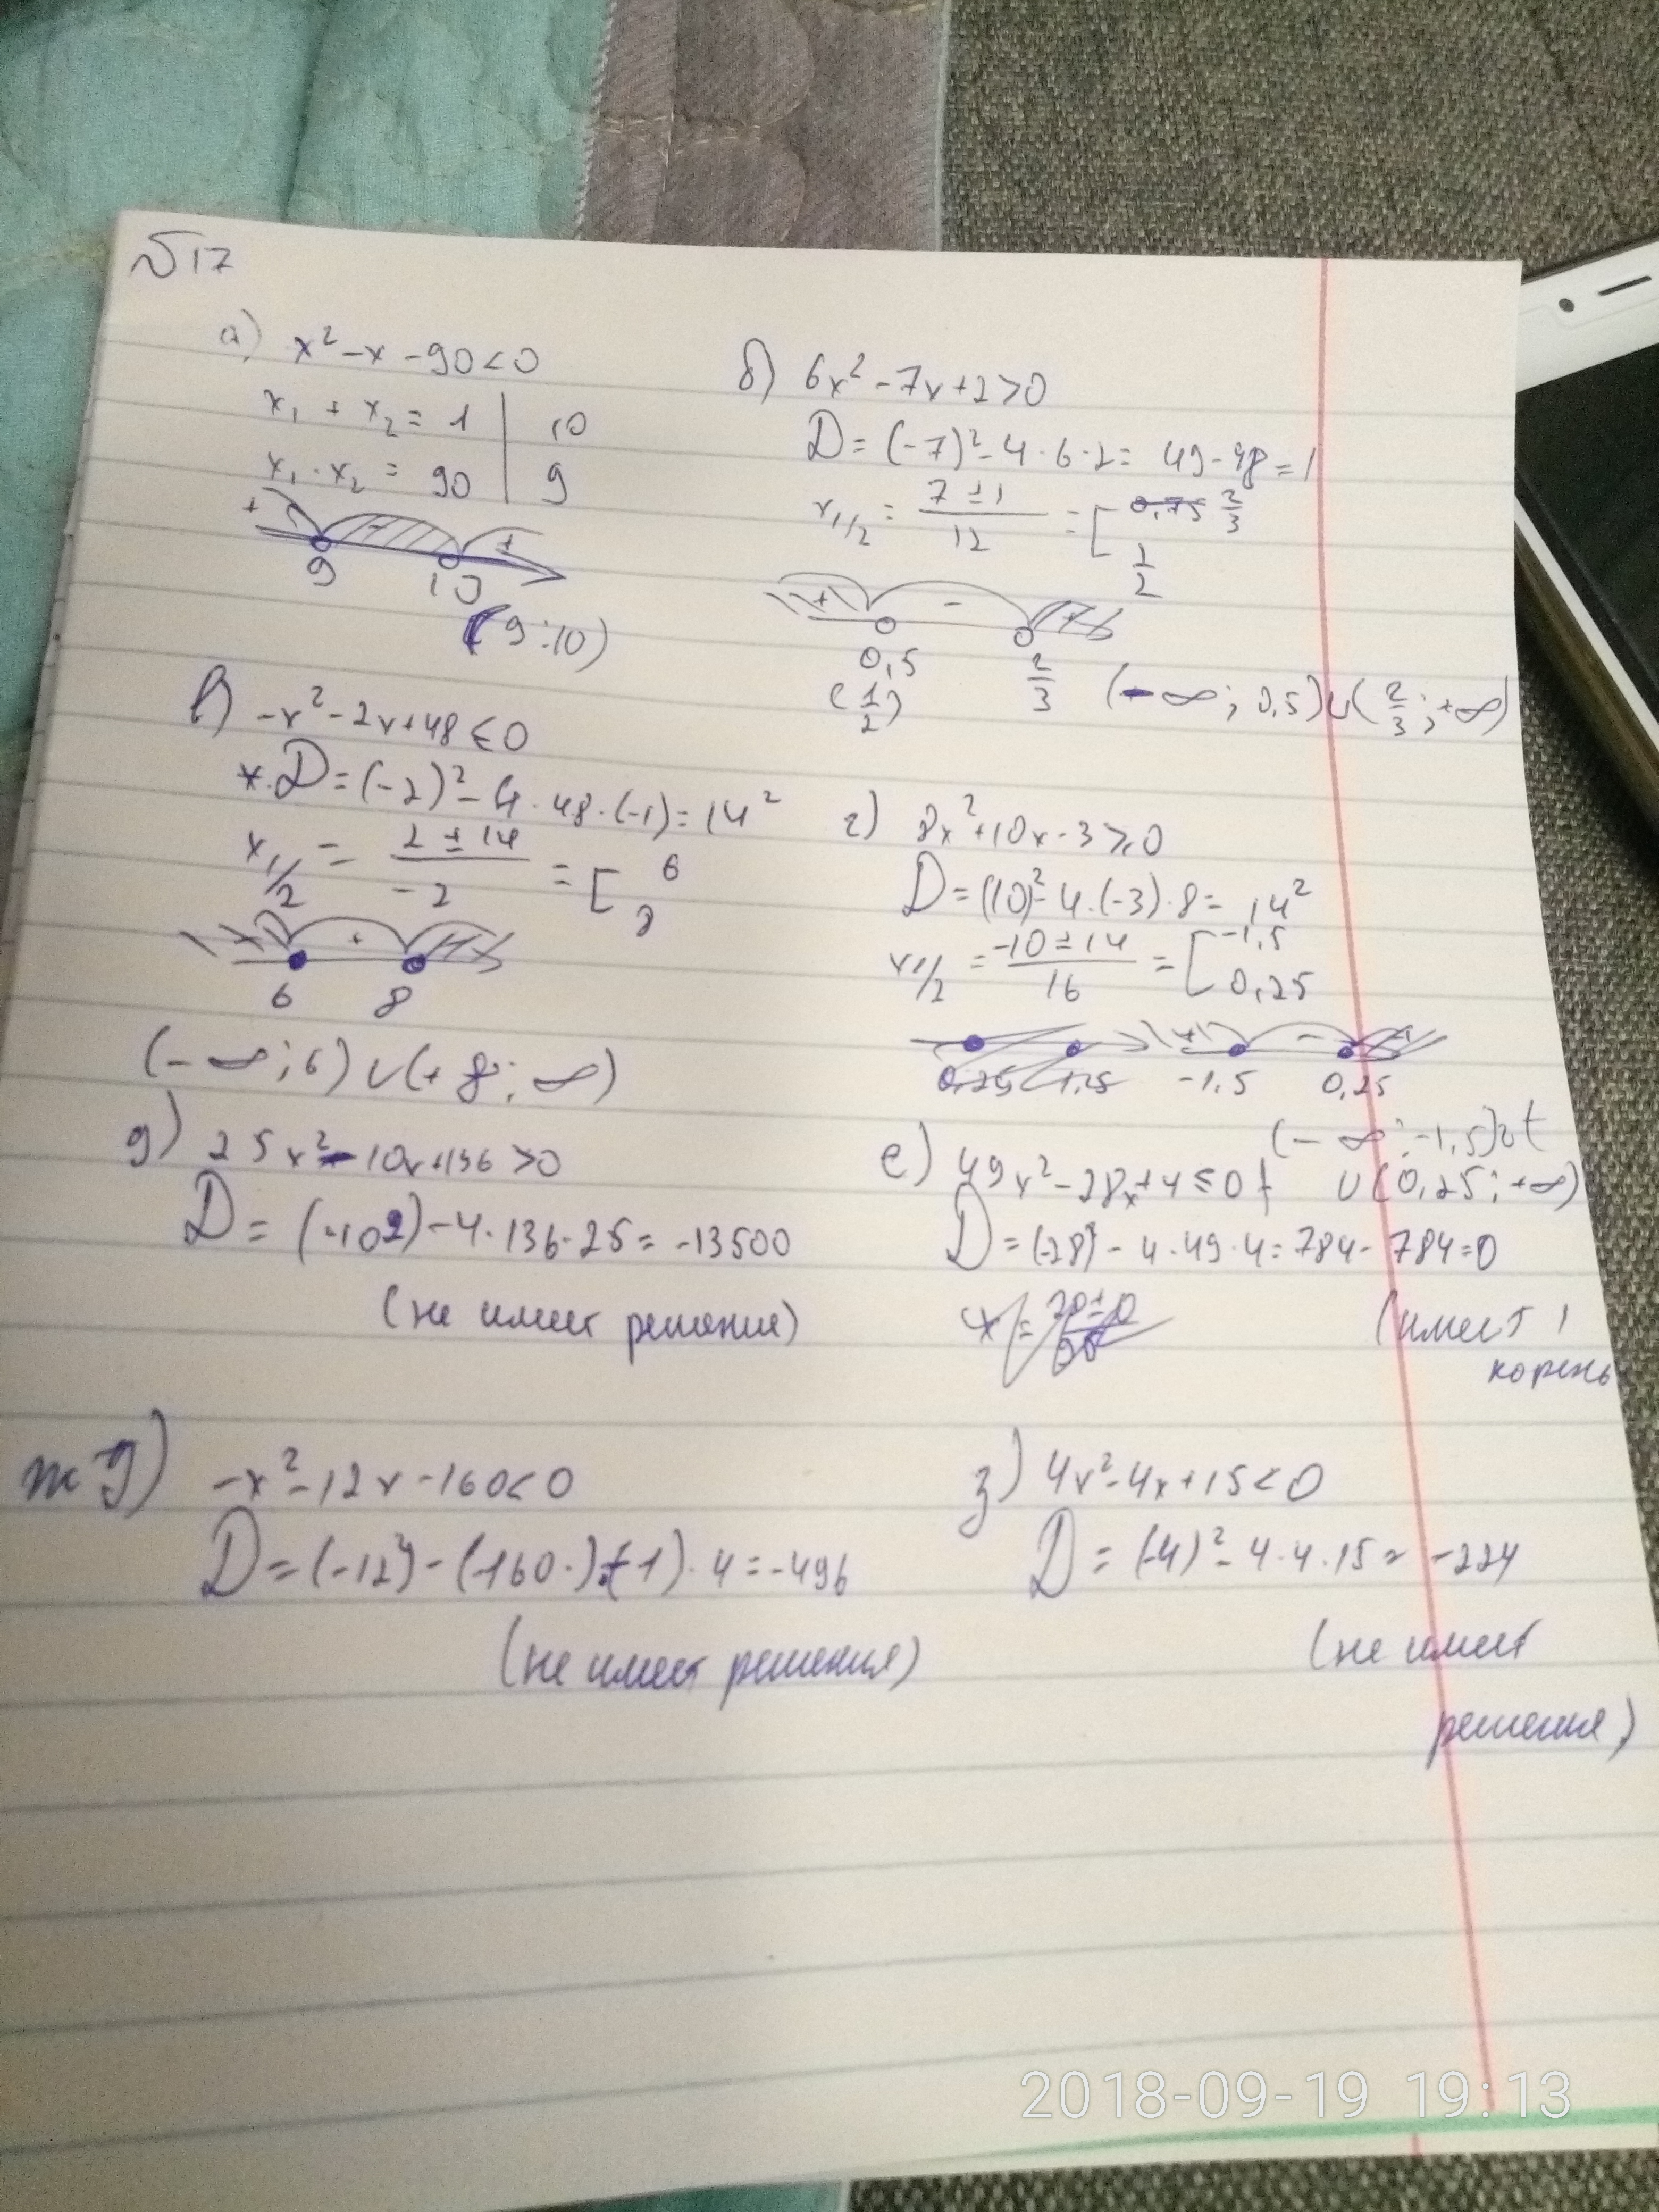 №17
а) x² - x - 90 < 0
x₁ + x₂ = 1 | 10
x₁ · x₂ = 90 | 9
+ - +
9 10
(9 ; 10)
б) 6x² - 7x + 2 > 0
D = (-7)² - 4 · 6 · 2 = 49 - 48 = 1
x₁/₂ = (7 ± 1)/12 = [ 2/3
1/2
+ - +
0,5 2/3
(1/2) (-∞ ; 0,5) ∪ (2/3 ; +∞)
в) -x² - 2x + 48 ≤ 0
D = (-2)² - 4 · 48 · (-1) = 14²
x₁/₂ = (2 ± 14)/-2 = [ 6
8
+
6 8
(-∞ ; 6) ∪ (+ 8 ; ∞)
г) 8x² + 10x - 3 ≥ 0
D = (10)² - 4 · (-3) · 8 = 14²
x₁/₂ = (-10 ± 14)/16 = [ -1,5
0,25
+ - +
0,25 1,25 -1,5 0,25
(-∞ ; -1,5) ∪
∪ (0,25 ; +∞)
д) 25x² - 10x + 136 > 0
D = (-10²) - 4 · 136 · 25 = -13500
(не имеет решение)
е) 49x² - 28x + 4 ≤ 0
D = (-28)² - 4 · 49 · 4 = 784 - 784 = 0
(имеет 1
корень
ж) -x² - 12x - 160 < 0
D = (-12²) - (-160 ·) · (-1) · 4 = -496
(не имеет решения)
з) 4x² - 4x + 15 < 0
D = (-4)² - 4 · 4 · 15 = -224
(не имеет
решения)
2018-09-19 19:13